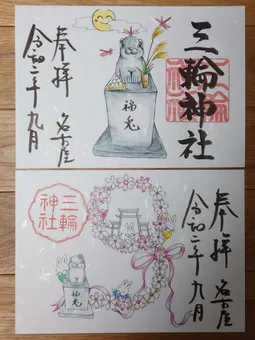 三輪神社
奉拝
名古屋
令和二年九月
福兎
三輪神社
奉拝
名古屋
令和二年九月
三輪
神社
福兎